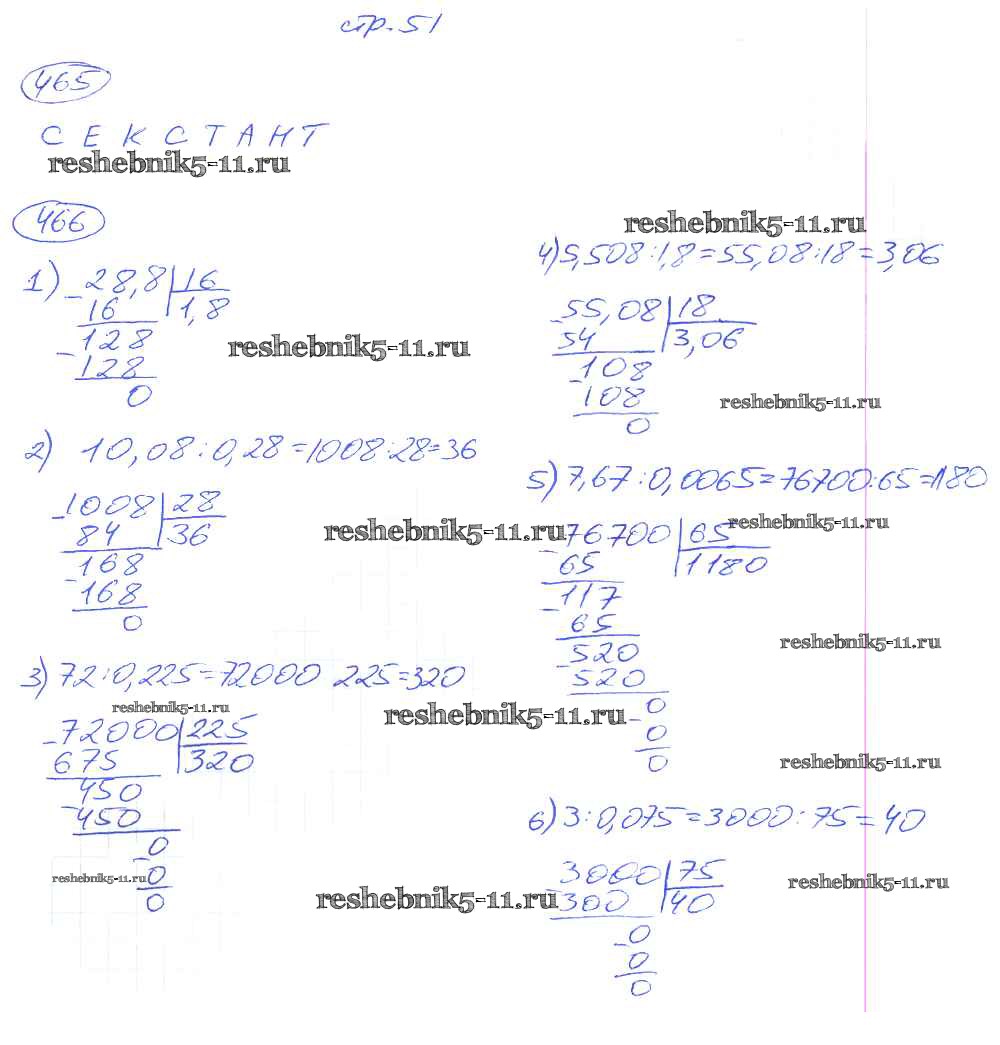 стр. 51
465
СЕКСТАНТ
reshebnik5-11.ru
466
1) 28,8 | 16
- 16 | 1,8
128
- 128
0
reshebnik5-11.ru
2) 10,08 : 0,28 = 1008 : 28 = 36
- 1008 | 28
84 | 36
- 168
168
0
reshebnik5-11.ru
3) 72 : 0,225 = 72000 225 = 320
reshebnik5-11.ru
- 72000 | 225
675 | 320
- 450
450
- 0
0
0
reshebnik5-11.ru
reshebnik5-11.ru
reshebnik5-11.ru
reshebnik5-11.ru
4) 5,508 : 1,8 = 55,08 : 18 = 3,06
- 55,08 | 18
54 | 3,06
- 108
108
0
reshebnik5-11.ru
5) 7,67 : 0,0065 = 76700 : 65 = 1180
reshebnik5-11.ru
- 76700 | 65
65 | 1180
- 117
65
- 520
520
- 0
0
0
reshebnik5-11.ru
reshebnik5-11.ru
6) 3 : 0,075 = 3000 : 75 = 40
- 3000 | 75
300 | 40
- 0
0
0
reshebnik5-11.ru